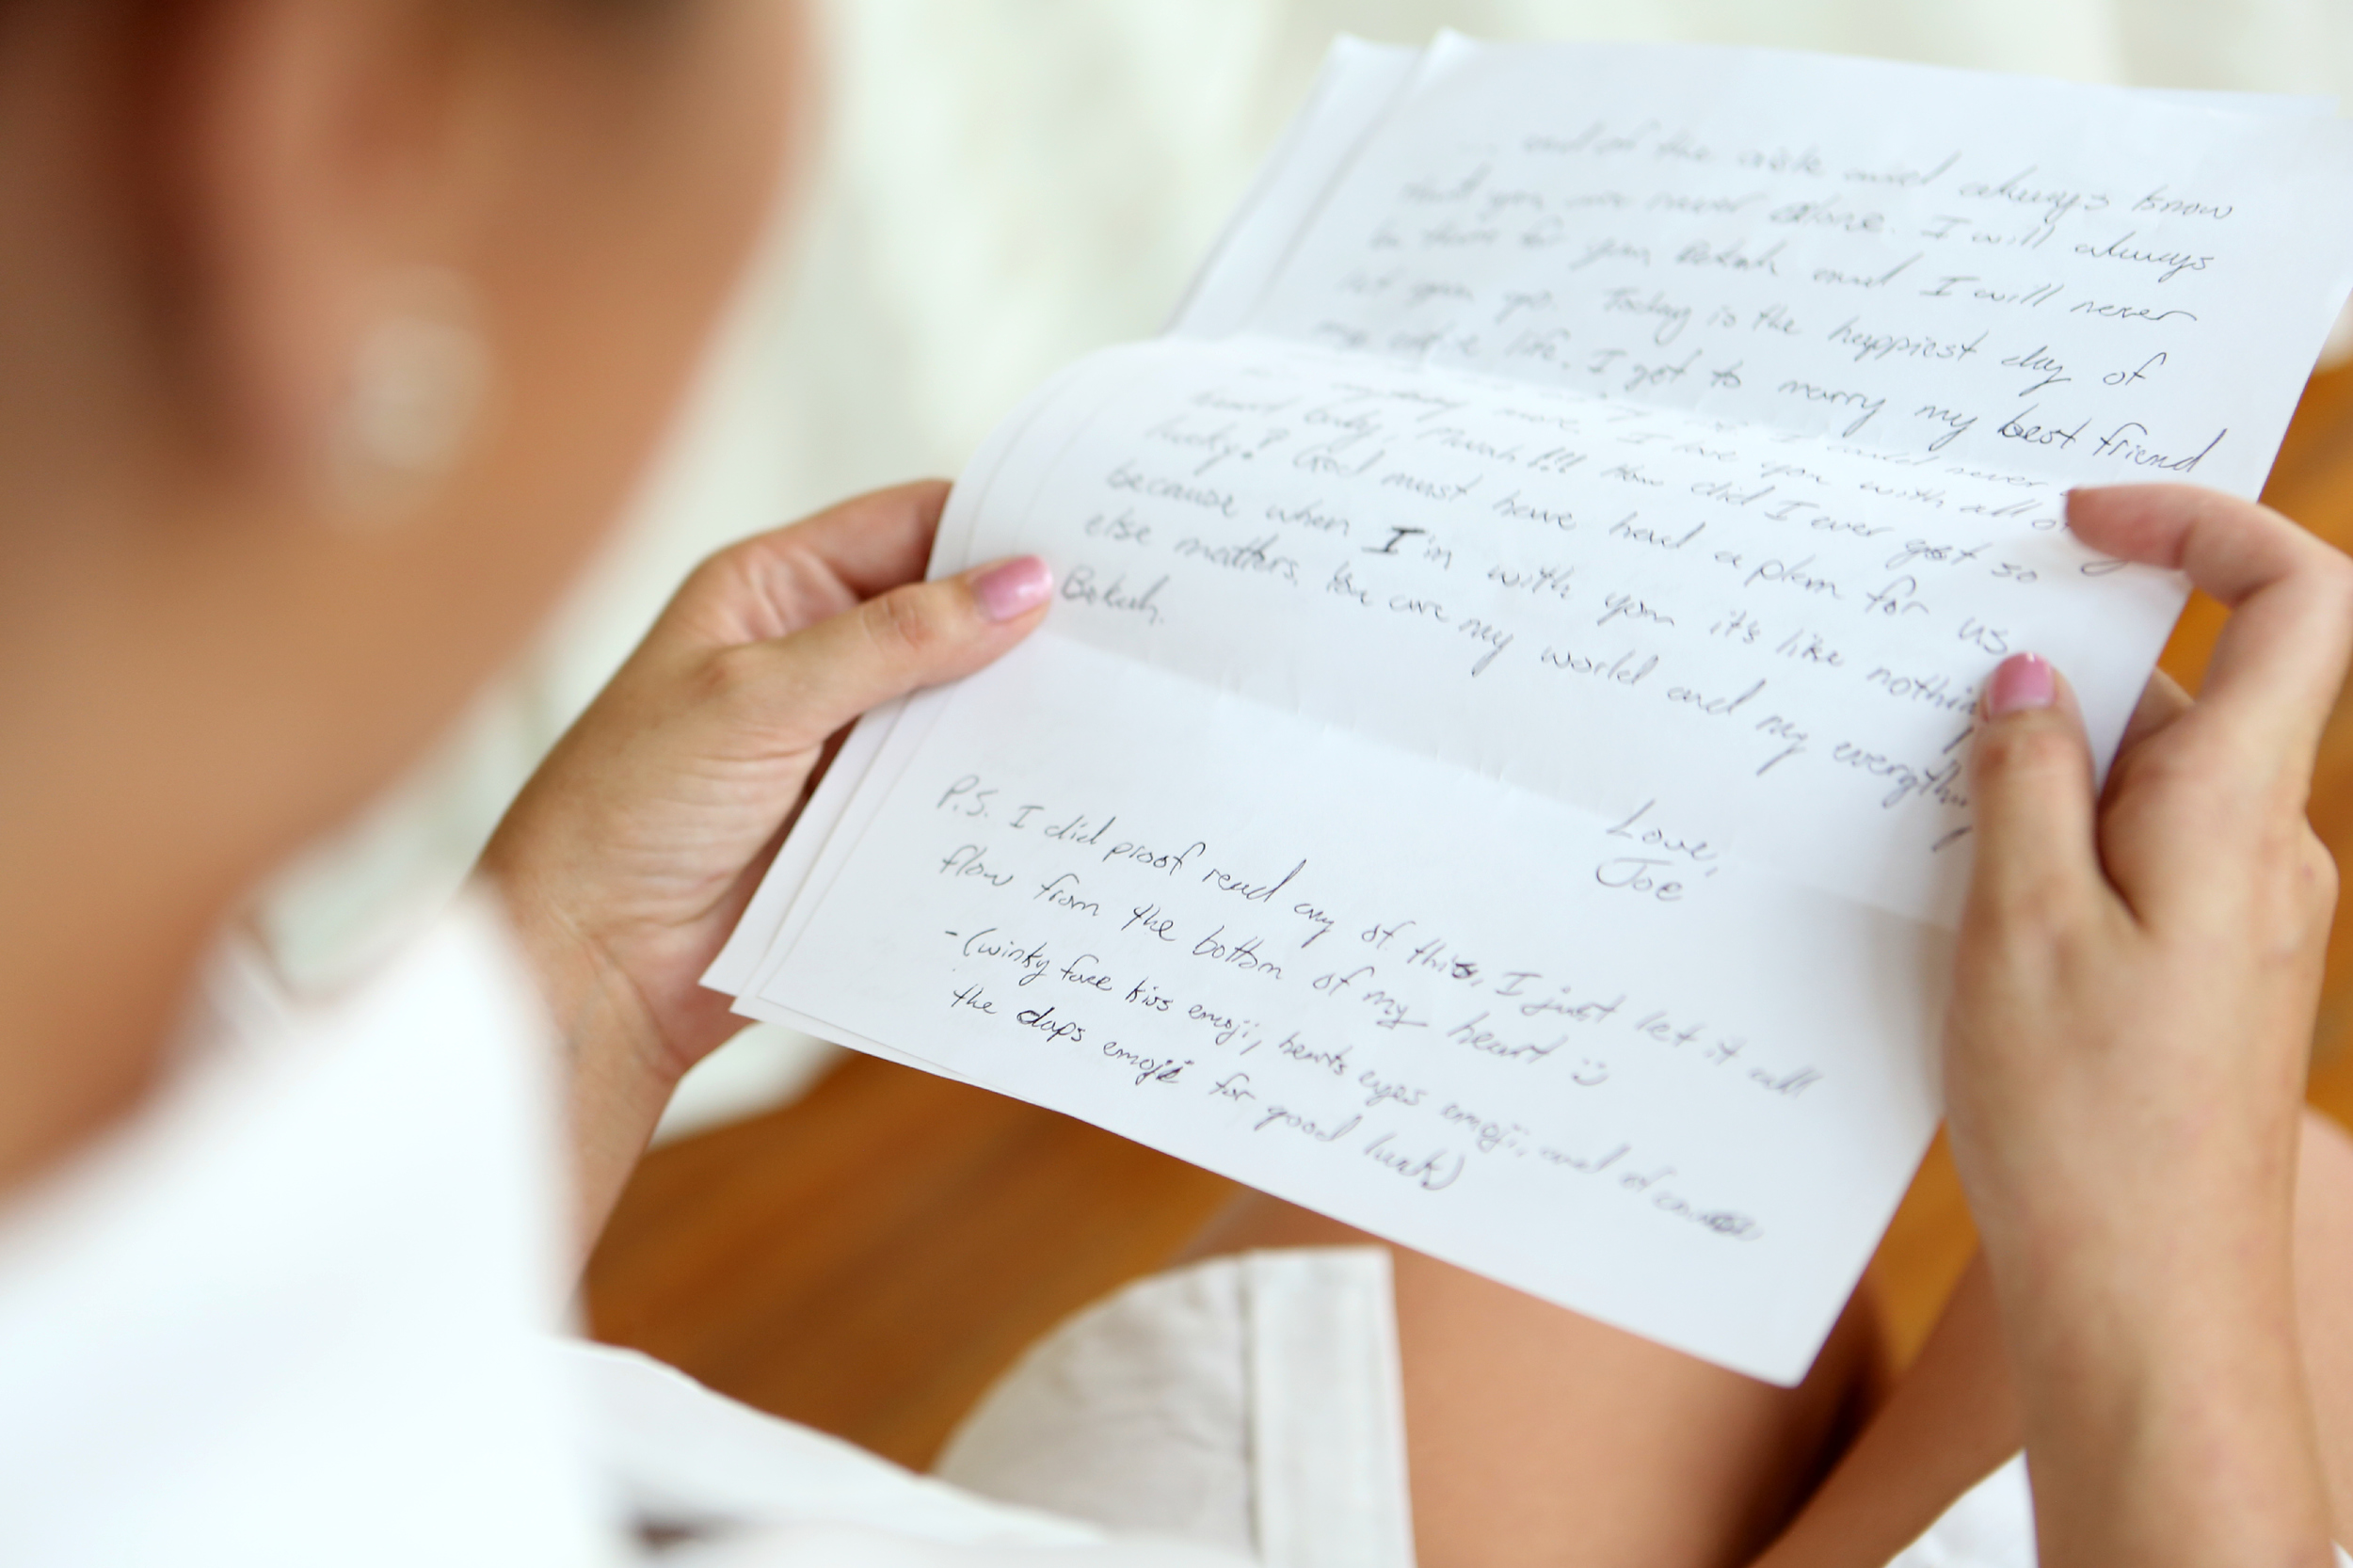 end of the aisle and always know
that you are never alone. I will always
be there for you Bekah and I will never
let you go. Today is the happiest day of
my life. I get to marry my best friend
I could never
more. I love you with all of
and only. Muah!!! How did I ever get so
lucky? God must have had a plan for us
because when I'm with you it's like nothing
else matters. You are my world and my everything
Bekah.
Love,
Joe
P.S. I did proof read any of this, I just let it all
flow from the bottom of my heart :)
-(winky face kiss emoji, hearts eyes emoji, and of course
the daps emoji for good luck)